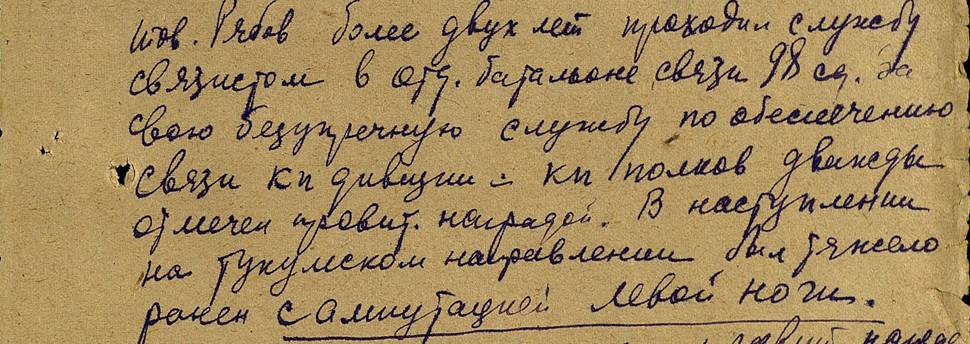 тов. Рябов более двух лет проходил службу
связистом в отд. батальоне связи 98 сд. За
свою безупречную службу по обеспечению
связи кп дивизии - кп полков дважды
отмечен правит. наградой. В наступлении
на тукумском направлении был тяжело
ранен с ампутацией левой ноги.